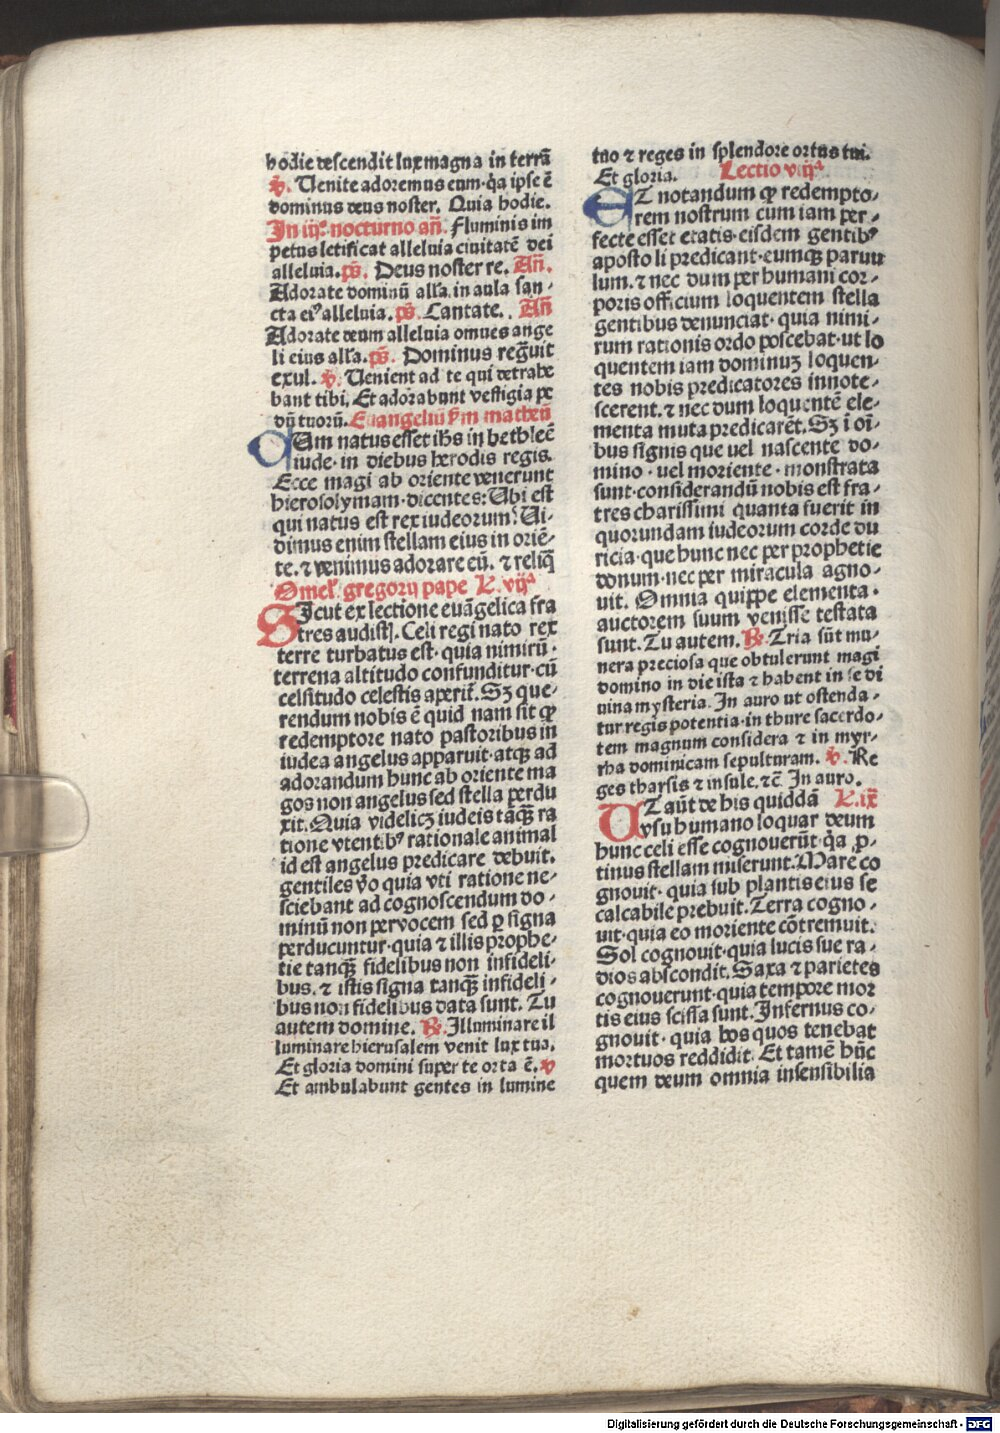 hodie descendit lux magna in terrā
℣. Uenite adoremus eum·q̇a ipse ē
dominus deus noster. Quia hodie.
In iijº nocturno añ. Fluminis im
petus letificat alleluia ciuitatē dei
alleluia. p̄s. Deus noster re. Añ.
Adorate dominū alľa. in aula san-
cta eiꝰ alleluia. p̄s. Cantate. Añ
Adorate deum alleluia omnes ange
li eius alľa. p̄s. Dominus reg̃uit
exul. ℣. Uenient ad te qui detrahe
bant tibi. Et adorabunt vestigia pe
dū tuorū. Euangeliū ẜm matheū
CUm natus esset ihs in bethleē
iude· in diebus herodis regis.
Ecce magi ab oriente venerunt
hierosolymam·dicentes: Ubi est
qui natus est rex iudeorum? Ui-
dimus enim stellam eius in oriē-
te. ⁊ venimus adorare eū. ⁊ reliq̄
Omeľ. gregorij pape L. vijª
SIcut ex lectione euāgelica fra
tres audistꝭ. Celi regi nato rex
terre turbatus est· quia nimirū·
terrena altitudo confunditur·cū
celsitudo celestis aperit̃. Sꝫ que-
rendum nobis ē quid nam sit ꝙ
redemptore nato pastoribus in
iudea angelus apparuit·atqꝫ ad
adorandum hunc ab oriente ma
gos non angelus sed stella perdu
xit. Quia videlicꝫ iudeis tāqꝫ ra
tione vtentibꝰ rationale animal
id est angelus predicare debuit.
gentiles v̄o quia vti ratione ne-
sciebant ad cognoscendum do-
minū non per vocem sed ꝑ signa
perducuntur·quia ⁊ illis prophe-
tie tanqꝫ fidelibus non infideli-
bus. ⁊ istis signa tanqꝫ infideli-
bus non fidelibus data sunt. Tu
autem domine. ℟. Illuminare il
luminare hierusalem venit lux tua.
Et gloria domini super te orta ē. ℣
Et ambulabunt gentes in lumine
tuo ⁊ reges in splendore ortus tui.
Et gloria. Lectio viijª
ET notandum ꝙ redempto-
rem nostrum cum iam per-
fecte esset etatis·eisdem gentibꝰ
apostoli predicant·eumqꝫ paruu
lum. ⁊ nec dum per humani cor-
poris officium loquentem stella
gentibus denunciat· quia nimi-
rum rationis ordo poscebat·ut lo
quentem iam dominuꝫ loquen-
tes nobis predicatores innote-
scerent. ⁊ nec dum loquentē ele-
menta muta predicarēt. Sꝫ i oī-
bus signis que uel nascente do-
mino·uel moriente·monstrata
sunt·considerandū nobis est fra-
tres charissimi quanta fuerit in
quorundam iudeorum corde du
ricia·que hunc nec per prophetie
donum·nec per miracula agno-
uit. Omnia quippe elementa·
auctorem suum venisse testata
sunt. Tu autem. ℟. Tria sūt mu-
nera preciosa que obtulerunt magi
domino in die ista ⁊ habent in se di
uina mysteria. In auro ut ostenda-
tur regis potentia·in thure sacerdo-
tem magnum considera ⁊ in myr-
rha dominicam sepulturam. ℣. Re
ges tharsis ⁊ insule. ⁊c̄ In auro.
UT aūt de his quiddā L. ix
vsu humano loquar deum
hunc celi esse cognouerūt·q̇a ꝓ-
tinus stellam miserunt. Mare co
gnouit· quia sub plantis eius se
calcabile prebuit. Terra cogno-
uit·quia eo moriente cōtremuit.
Sol cognouit·quia lucis sue ra-
dios abscondit. Saxa ⁊ parietes
cognouerunt·quia tempore mor
tis eius scissa sunt. Infernus co-
gnouit· quia hos quos tenebat
mortuos reddidit. Et tamē hūc
quem deum omnia insensibilia
Digitalisierung gefördert durch die Deutsche Forschungsgemeinschaft - DFG